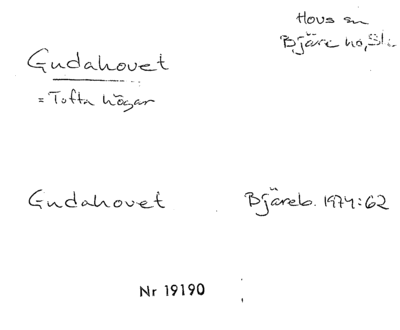 Hovs sn
Bjäre hd, Sk.
Gudahovet
= Tofta högar
Gudahovet Bjäreb. 1974:62
Nr 19190